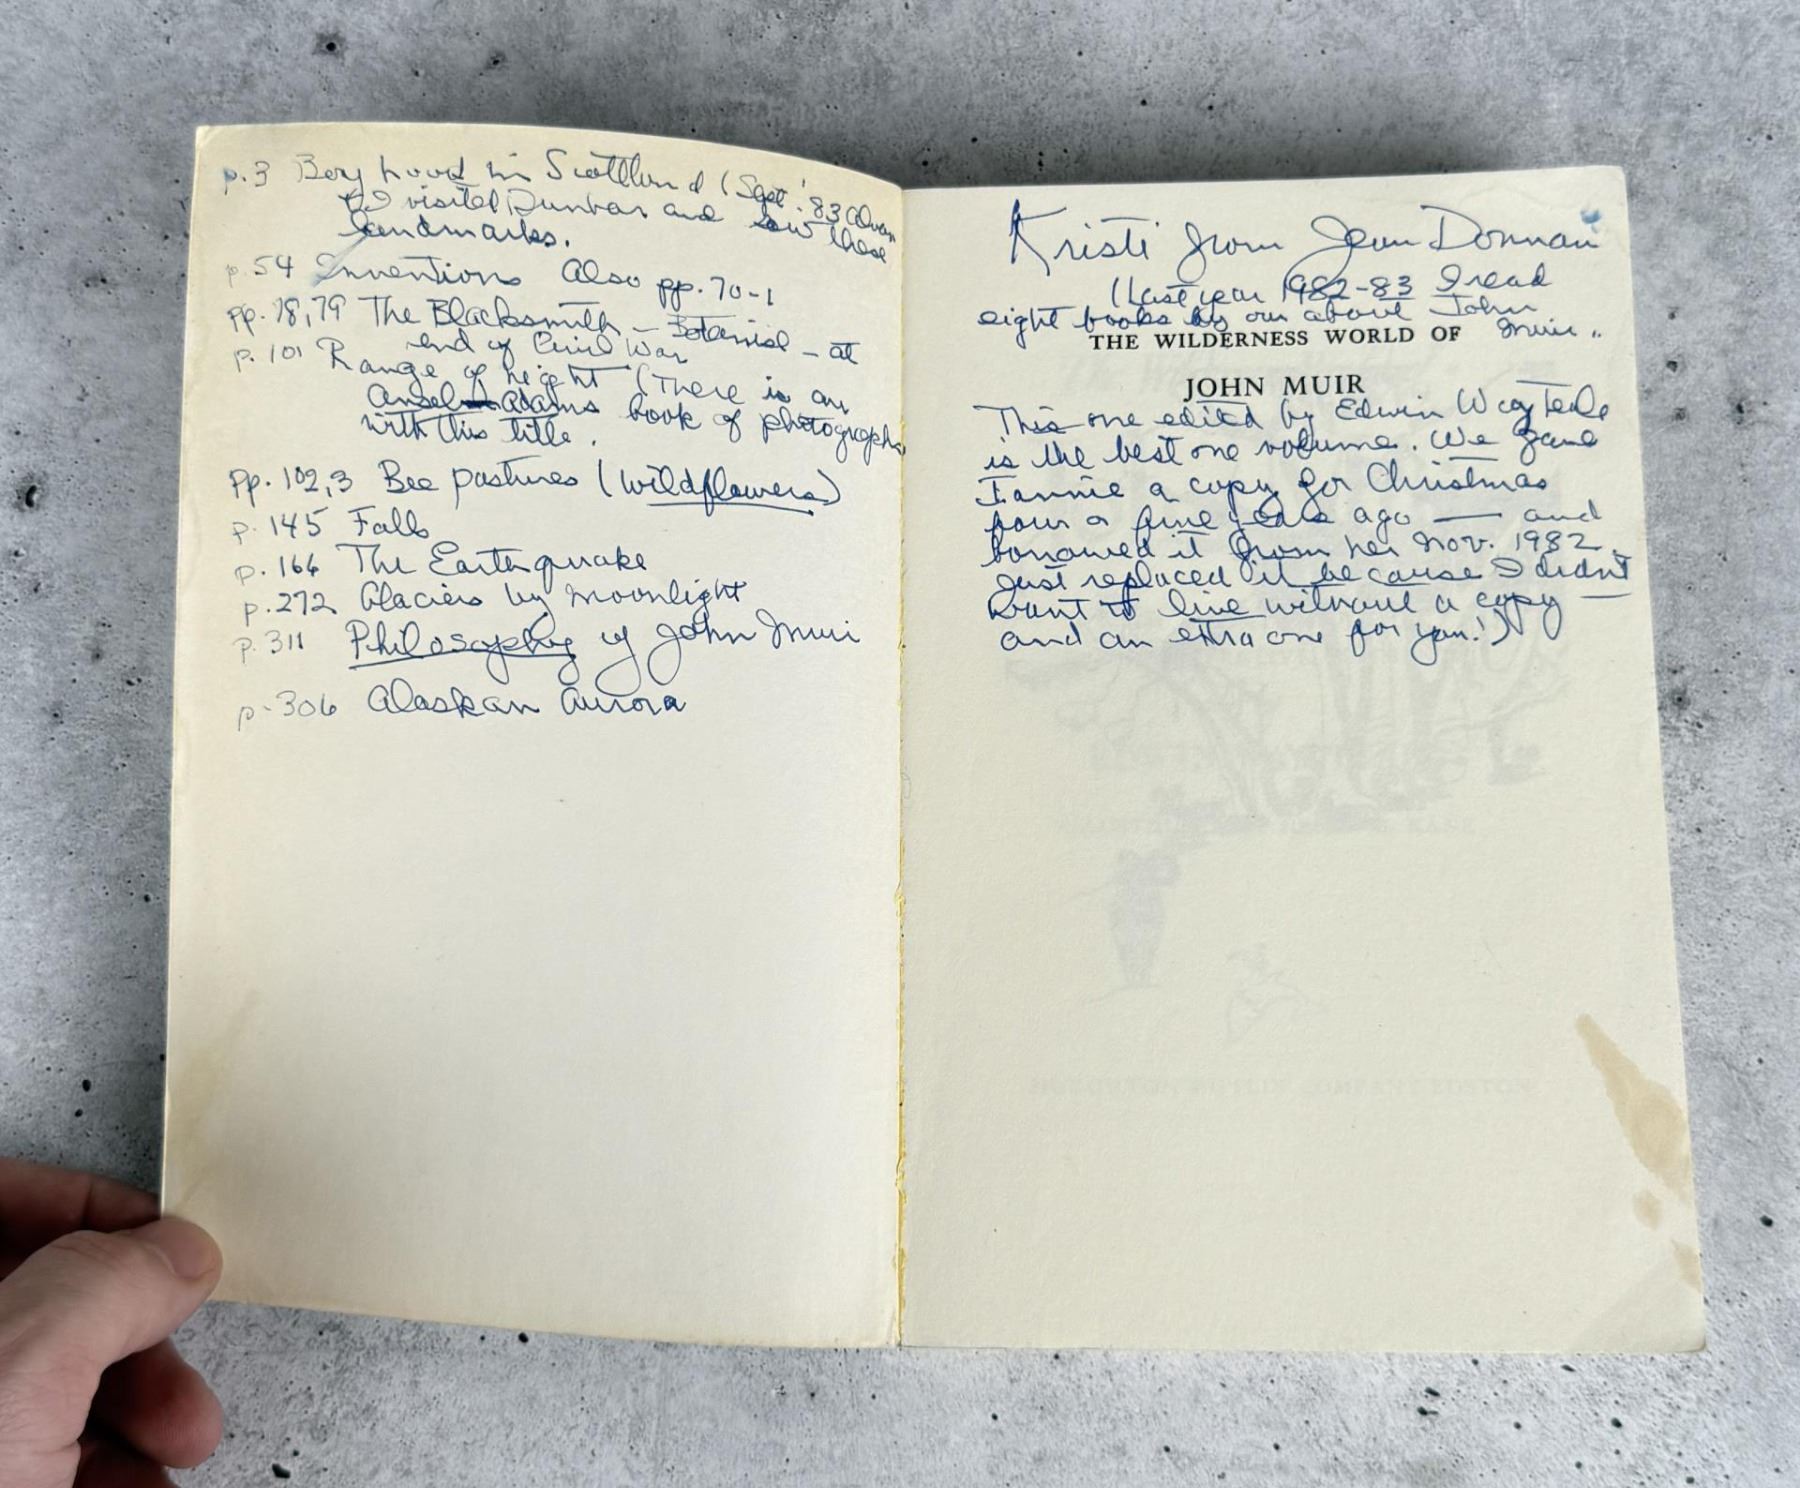 p.3 Boyhood in Scotland (Sept. '83 Alvan
& I visited Dunbar and saw these
landmarks.
p.54 Inventions Also pp. 70-1
pp. 78,79 The Blacksmith - Botanist - at
end of Civil War
p. 101 Range of Light (There is an
Ansel Adams book of photographs
with this title.
pp. 102,3 Bee pastures (wildflowers)
p. 145 Falls
p. 166 The Earthquake
p. 272 Glaciers by Moonlight
p. 311 Philosophy of John Muir
p. 306 Alaskan Aurora
Kristi from Jean Donnan
(Last year 1982-83 I read
eight books by or about John
Muir..
THE WILDERNESS WORLD OF
JOHN MUIR
This one edited by Edwin Way Teale
is the best one volume. We gave
a copy for Christmas
four or five years ago — and
borrowed it from her Nov. 1982.
Just replaced it because I didn't
want to live without a copy
and an extra one for you!)